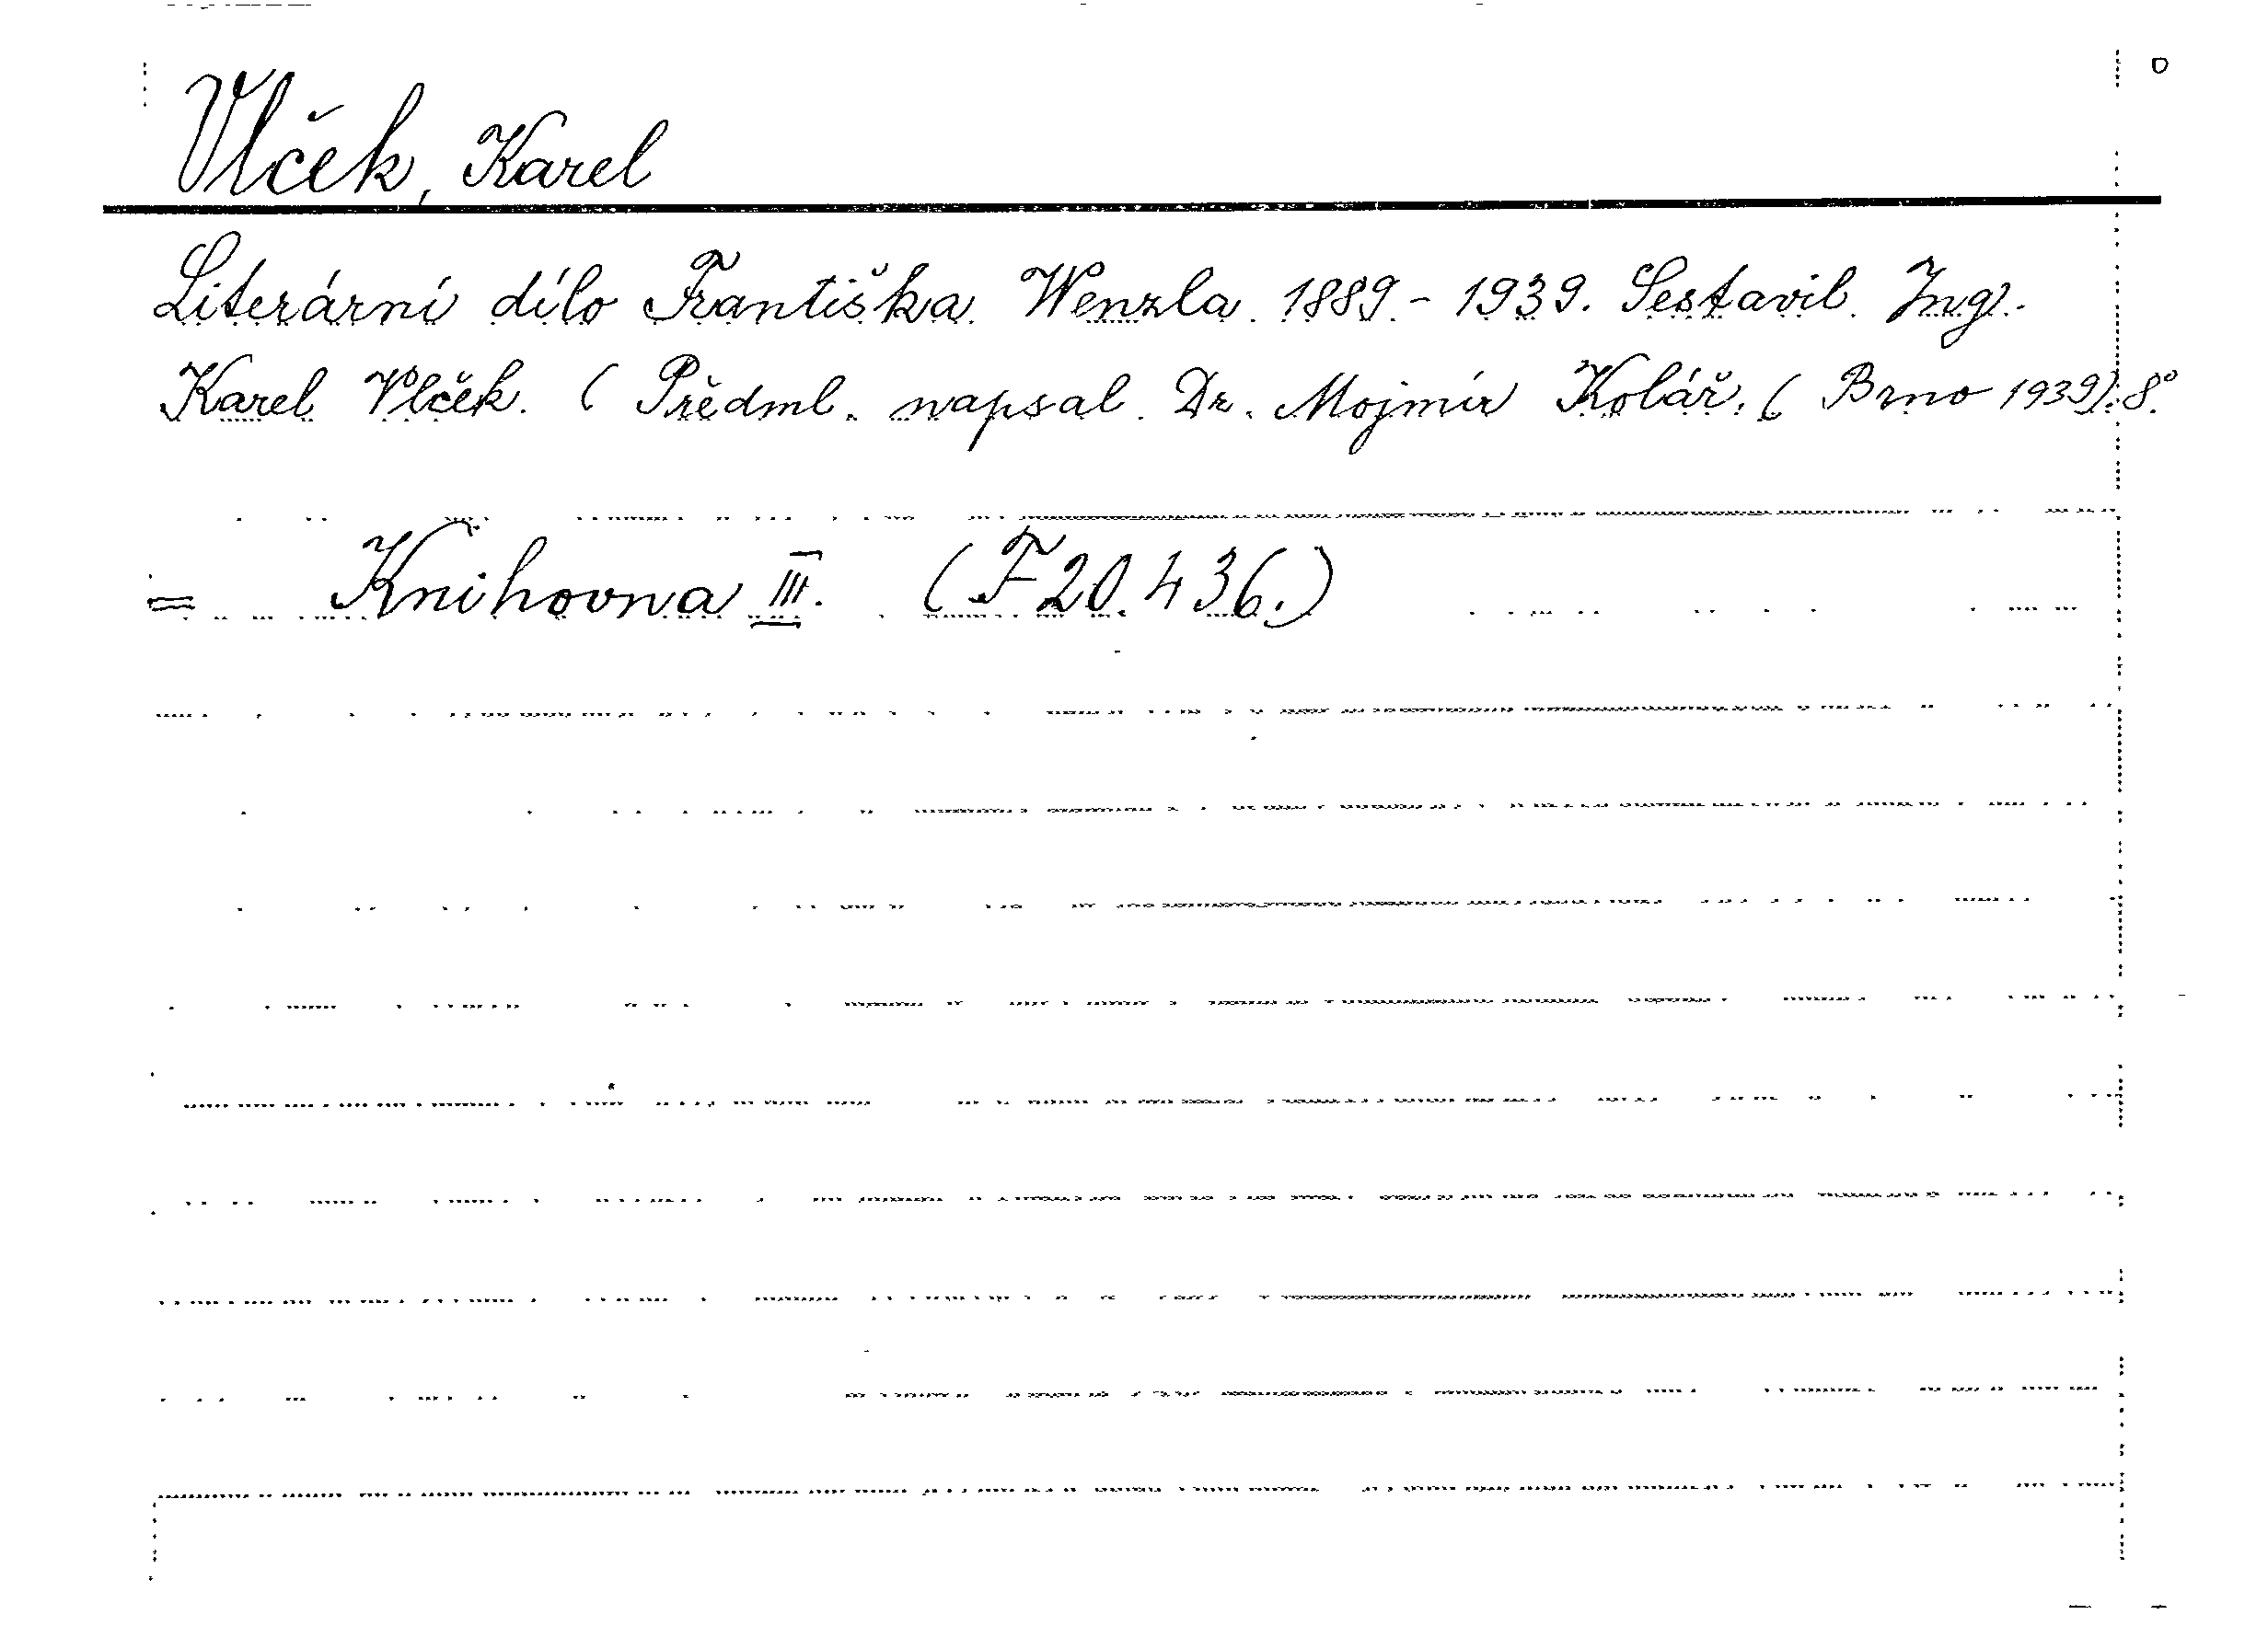 Vlček, Karel
Literární dílo Františka Wenzla. 1889.-1939. Sestavil Ing.
Karel Vlček. ( Předml. napsal Dr. Mojmír Kolář. ( Brno 1939). 8°.
= Knihovna III. (F 20.436.)